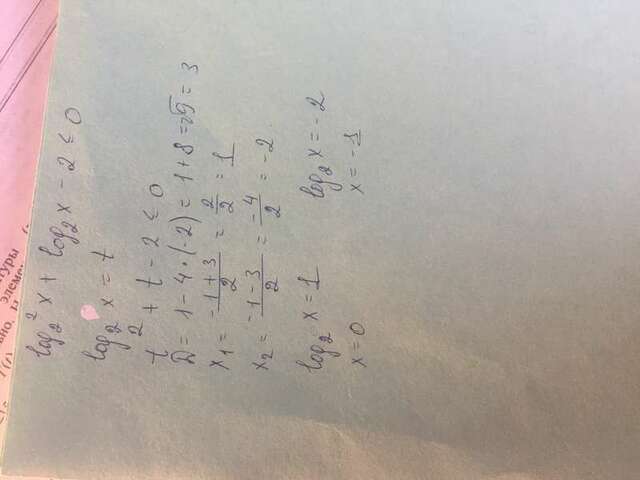 log₂²x + log₂x - 2 ≤ 0
log₂ x = t
t² + t - 2 ≤ 0
D = 1 - 4 · (-2) = 1 + 8 = √9 = 3
x₁ = -1+3/2 = 2/2 = 1
x₂ = -1-3/2 = -4/2 = -2
log₂ x = 1 log₂ x = -2
x = 0 x = -1